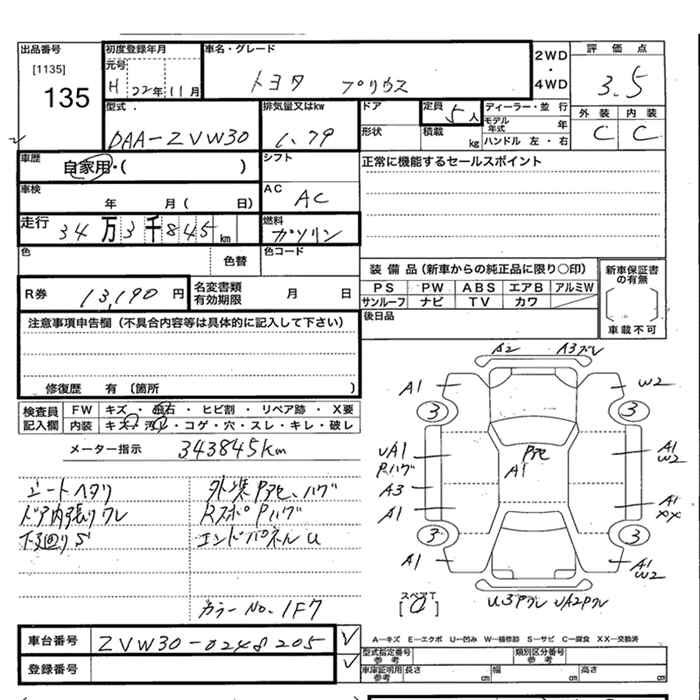 出品番号
[1135]
135
初度登録年月
元号
H 22年 11月
車名・グレード
トヨタ プリウス
2WD
・
4WD
評価点
3.5
外装 内装
C C
型式
DAA-ZVW30
排気量又はkw
1.79
ドア
形状
定員
5人
積載
kg
ディーラー・並行
モデル年式 年
ハンドル 左・右
車歴
自家用・( )
シフト
正常に機能するセールスポイント
車検
年 月( 日)
AC
AC
走行
34万3千845km
燃料
ガソリン
色
色替
色コード
装備品(新車からの純正品に限り○印)
PS PW ABS エアB アルミW
サンルーフ ナビ TV カワ
新車保証書の有無
車載不可
R券
13,190円
名変書類有効期限
月 日
後日品
注意事項申告欄(不具合内容等は具体的に記入して下さい)
修復歴 有(箇所 )
検査員記入欄
FW キズ・飛石・ヒビ割・リペア跡・X要
内装 キズ・汚れ・コゲ・穴・スレ・キレ・破レ
メーター指示 343845km
シートヘタリ
ドア内張りワレ
下廻りS
外装Pアセ、ハゲ
RスポPハゲ
エンドパネルU
カラーNo.1F7
A2 A3ズレ
A1 W2
3 3
UA1
Pハゲ
A3
A1
Pアセ
A1
A1
W2
A1
XX
3 3
A1
A1
W2
スペアT
U3Pワレ UA2Pワレ
車台番号
ZVW30-0248205
登録番号
A―キズ E―エクボ U―凹み W―補修跡 S―サビ C―腐食 XX―交換済
型式指定番号
参考
類別区分番号
参考
車庫証明用参考
長さ cm
幅 cm
高さ cm